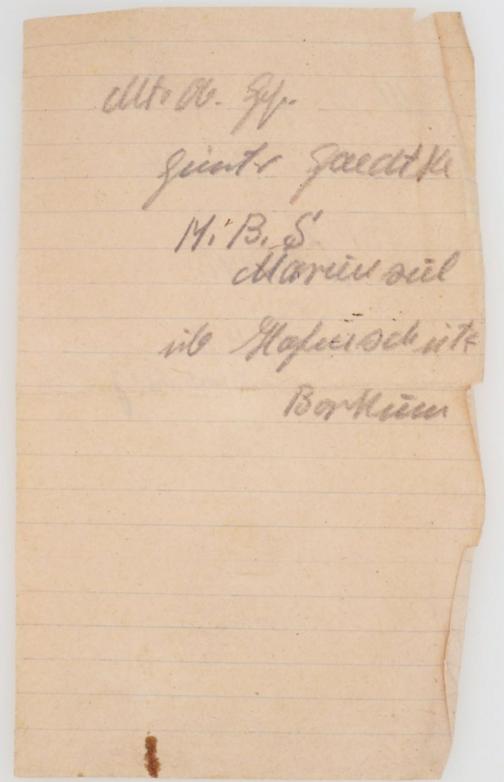 Mt. Ob. Gf.
Günter Gaedtke
M. B. S
Mariensiel
üb Hafenschutz
Borkum